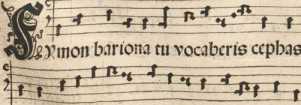 Symon bariona tu vocaberis cephas